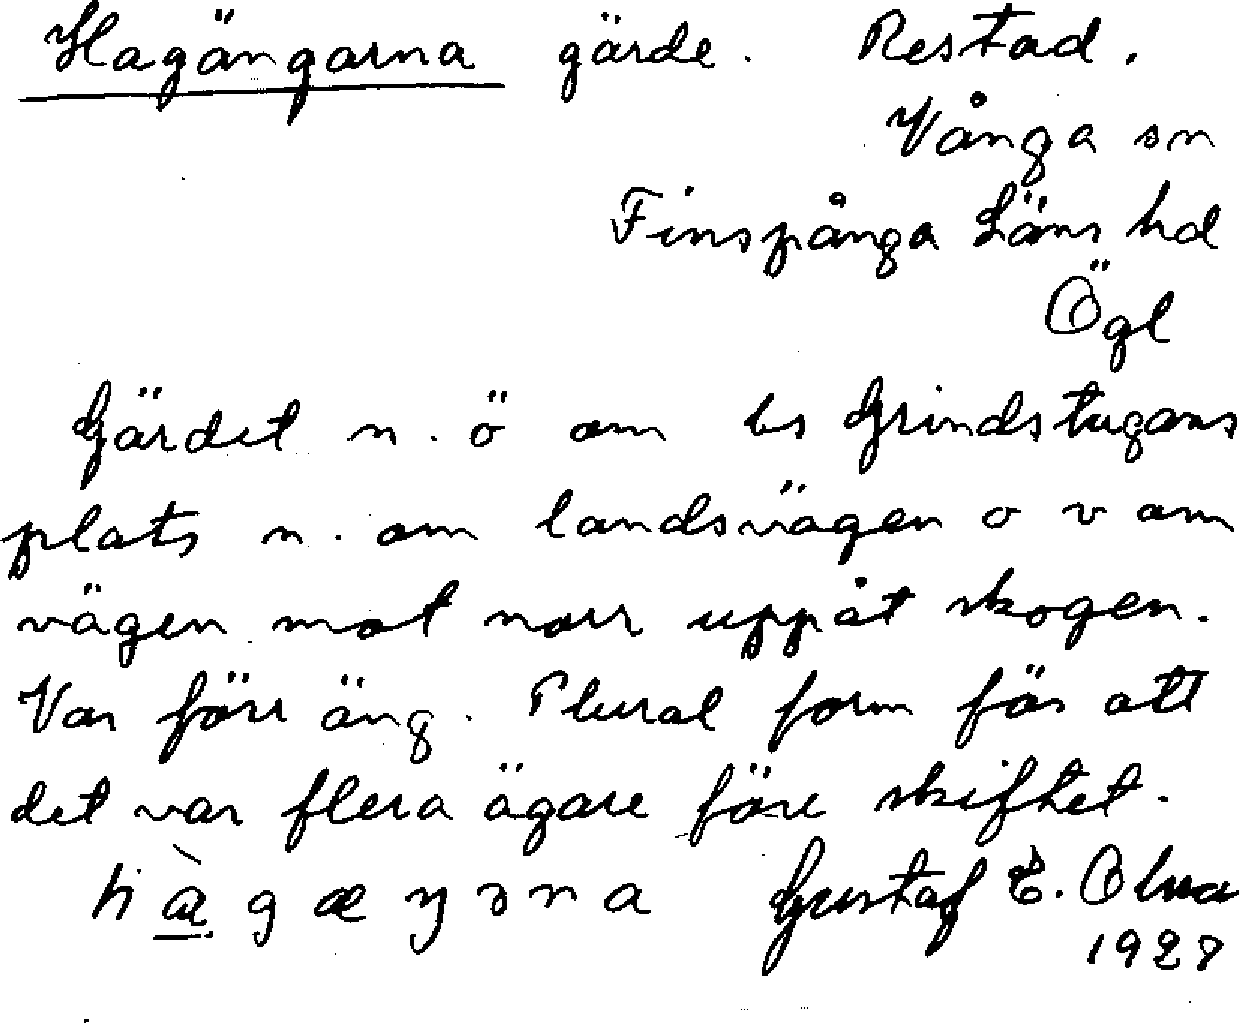 Hagängarna gärde. Restad.
Vånga sn
Finspånga Läns hd
Ögl
Gärdet n. ö om ls Grindstugans
plats n. om landsvägen o v om
vägen mot norr uppåt skogen.
Var förr äng. Plural form för att
det var flera ägare före skiftet.
Gustaf E. Olsson
1927